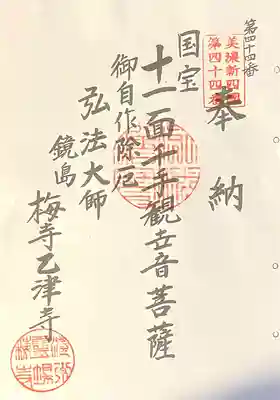 第四十四番
美濃新四国
第四十四番
奉納
国宝
十一面千手観世音菩薩
御自作除厄
弘法大師
鏡島
梅寺乙津寺